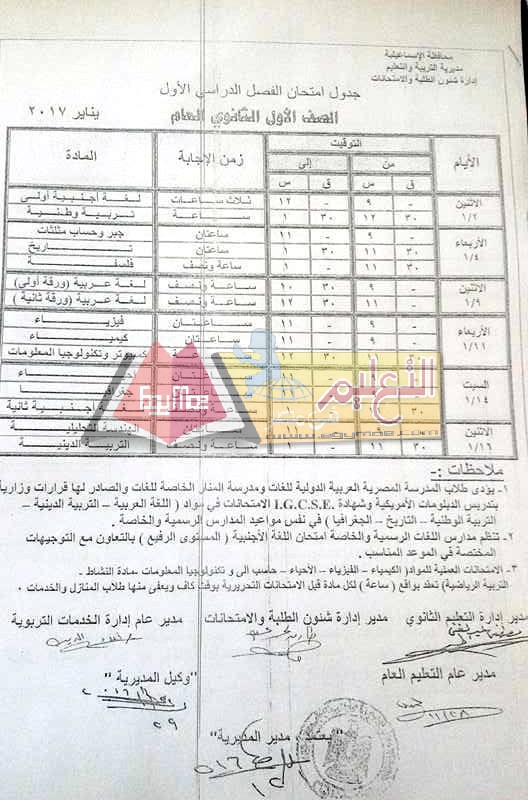 محافظة الإسماعيلية
مديرية التربية والتعليم
إدارة شئون الطلبة والامتحانات
جدول امتحان الفصل الدراسي الأول
الصف الأول الثانوي العام
يناير ٢٠١٧
الأيام التوقيت زمن الإجابة المادة
من إلى
ق س ق س
الاثنين ١/٢ - ٩ - ١٢ ثلاث ساعات لغة أجنبية أولى
٣٠ ١٢ ٣٠ ١ ساعة تربية وطنية
الأربعاء ١/٤ - ٩ - ١١ ساعتان جبر وحساب مثلثات
٣٠ ١١ ٣٠ ١ ساعتان تاريخ
٣٠ ١١ - ١ ساعة ونصف فلسفة
الاثنين ١/٩ - ٩ ٣٠ ١٠ ساعة ونصف لغة عربية (ورقة أولى)
- ١١ ٣٠ ١٢ ساعة ونصف لغة عربية (ورقة ثانية)
الأربعاء ١/١١ - ٩ - ١١ ساعتان فيزياء
- ٩ - ١١ ساعتان كيمياء
٣٠ ١٢ كمبيوتر وتكنولوجيا المعلومات
السبت ١/١٤
٣٠ أجنبية ثانية
الاثنين ١/١٦ - ٩ - ١١ ساعتان الهندسة التحليلية
٣٠ ١١ - ١ ساعة ونصف التربية الدينية
التعليم
موقع
www.egymoe.com
egymoe
ملاحظات :-
١- يؤدى طلاب المدرسة المصرية العربية الدولية للغات ومدرسة المنار الخاصة للغات والصادر لها قرارات وزارية
بتدريس الدبلومات الأمريكية وشهادة I.G.C.S.E. الامتحانات في مواد ( اللغة العربية – التربية الدينية –
التربية الوطنية – التاريخ – الجغرافيا ) في نفس مواعيد المدارس الرسمية والخاصة .
٢- تنظم مدارس اللغات الرسمية والخاصة امتحان اللغة الأجنبية (المستوى الرفيع ) بالتعاون مع التوجيهات
المختصة في الموعد المناسب .
٣- الامتحانات العملية للمواد( الكيمياء – الفيزياء – الأحياء – حاسب الى و تكنولوجيا المعلومات- مادة النشاط-
التربية الرياضية) تعقد بواقع ( ساعة ) لكل مادة قبل الامتحانات التحريرية بوقت كاف ويعفى منها طلاب المنازل والخدمات .
مدير إدارة التعليم الثانوي مدير إدارة شئون الطلبة والامتحانات مدير عام إدارة الخدمات التربوية
مدير عام التعليم العام
وكيل المديرية "
١١/٢٨
٢٩
يعتمد ، مدير المديرية "